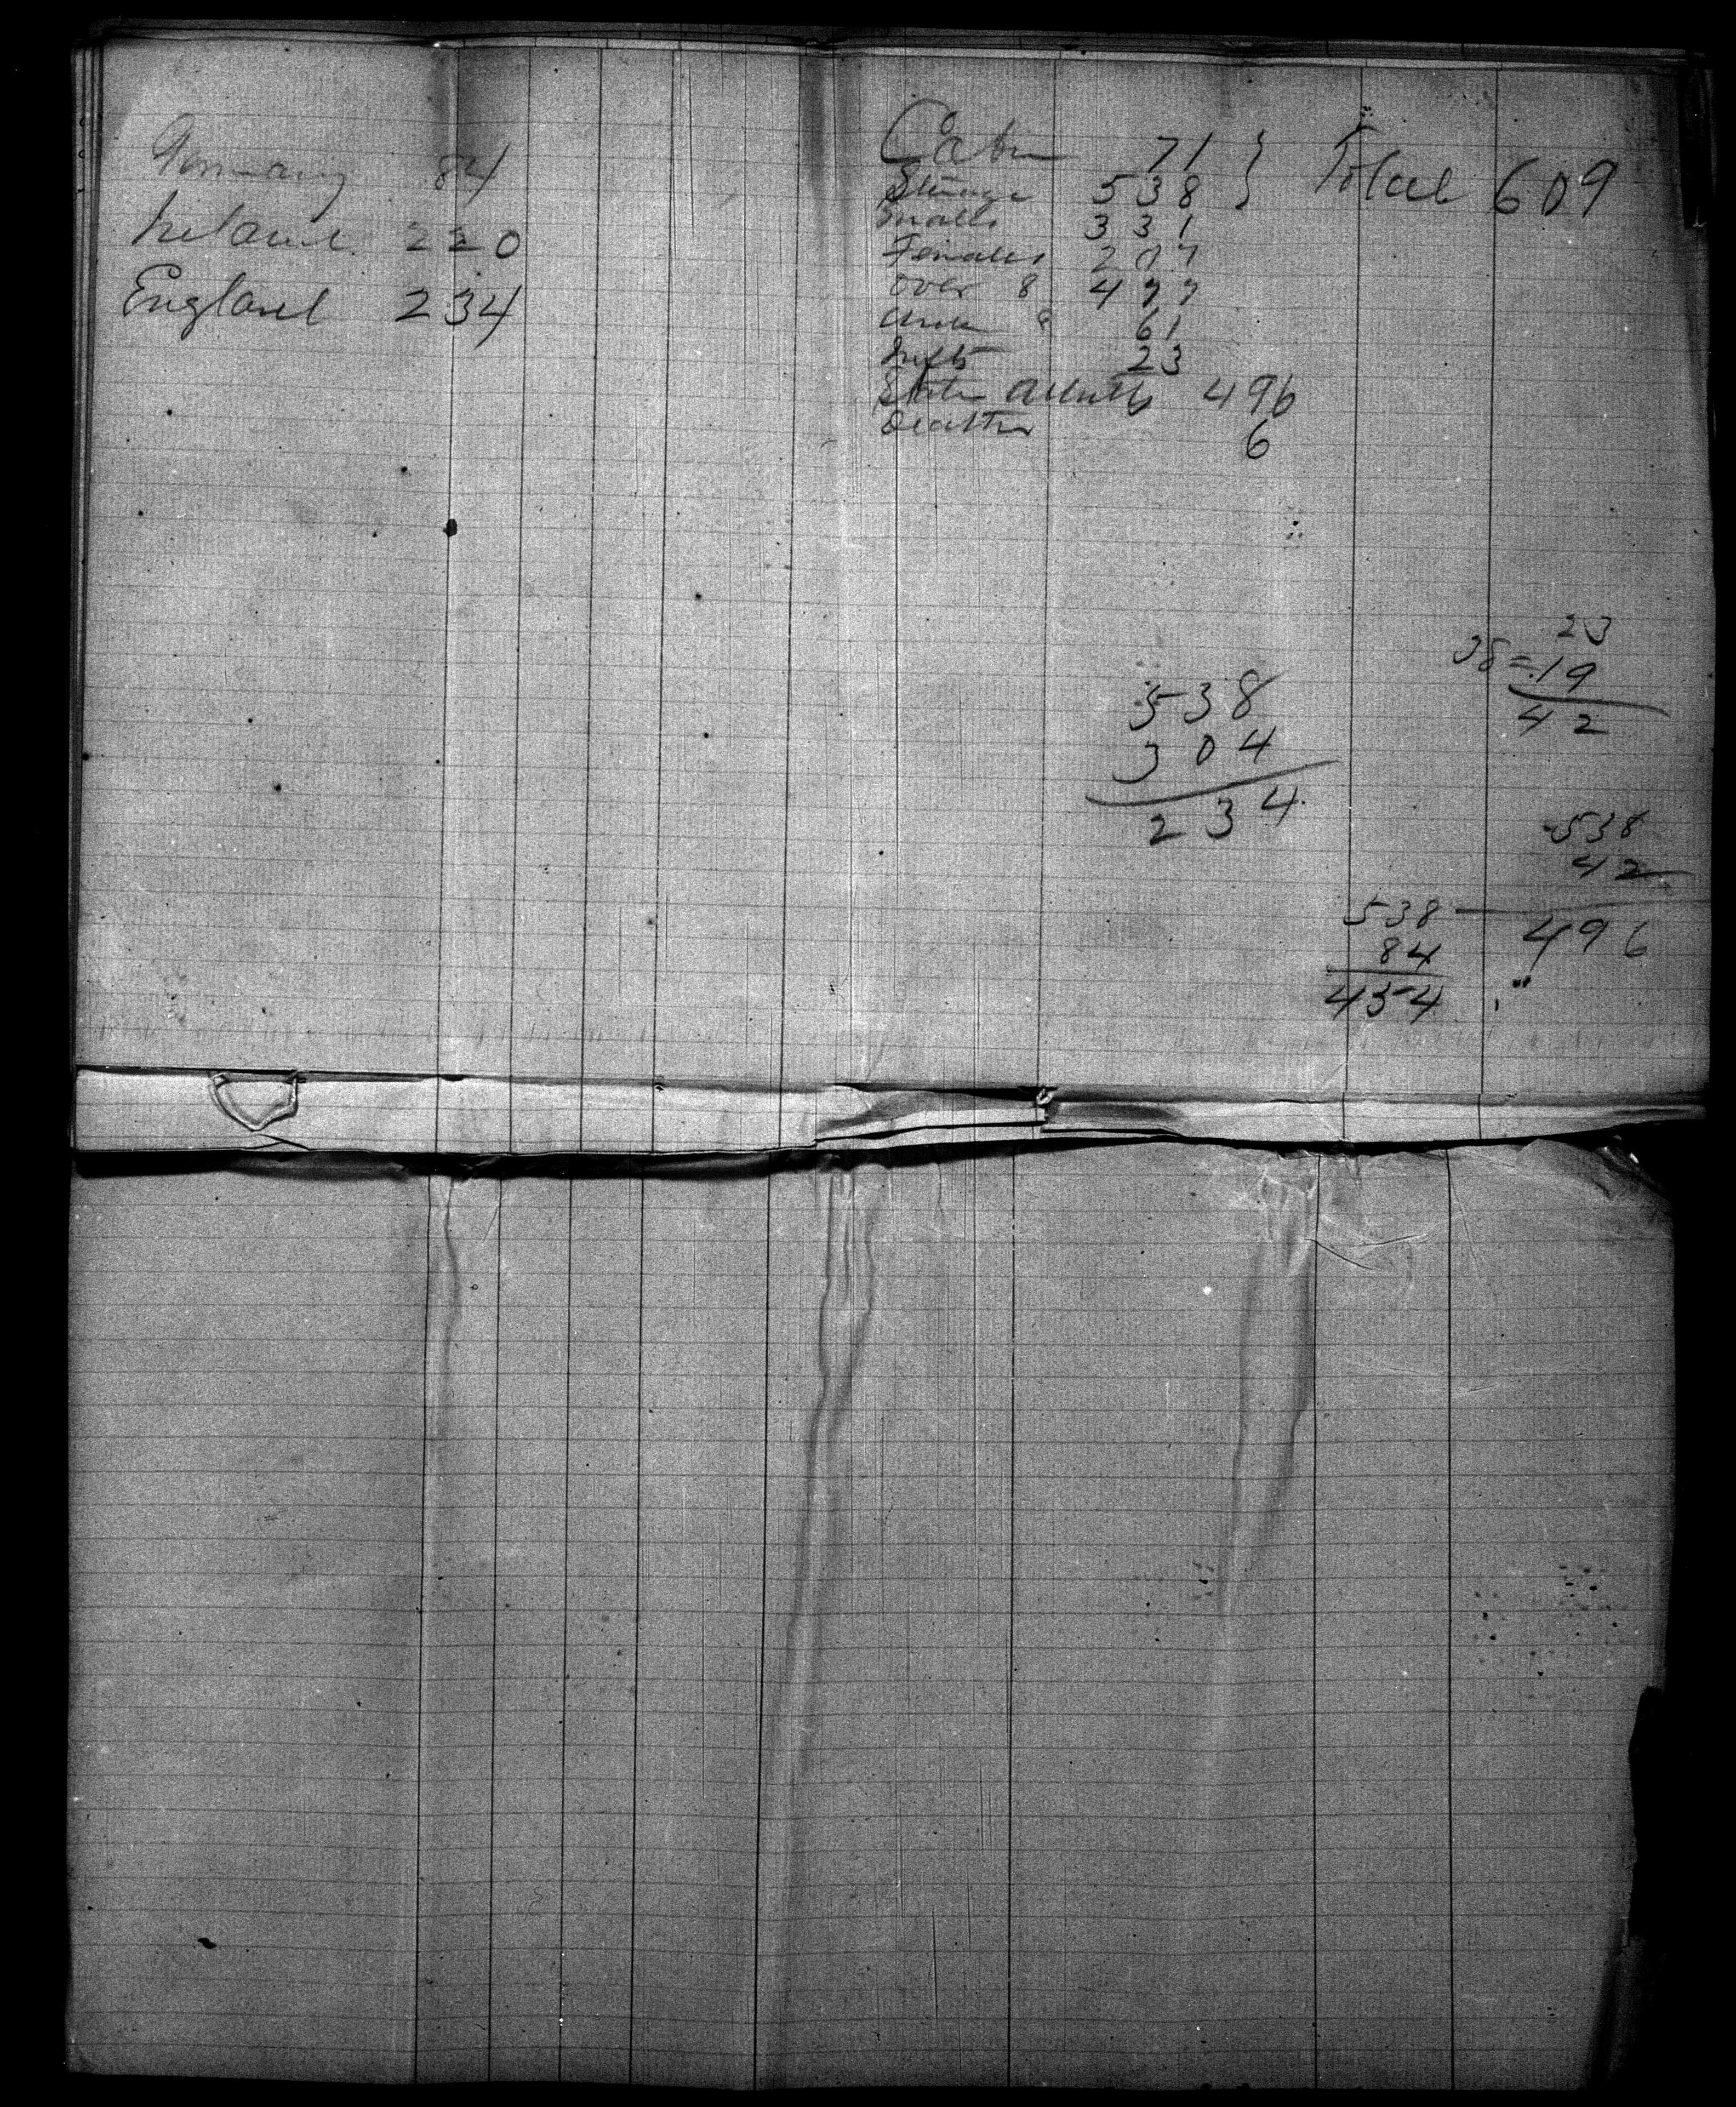 Germany 84
Ireland 220
England 234
Cabin 71 } Total 609
Steerage 538
Males 331
Females 207
Over 8 477
Under 8 61
Infts 23
State Adults 496
Deaths 6
23
38 = 19
42
538
304
234
538
42
496
538
84
454